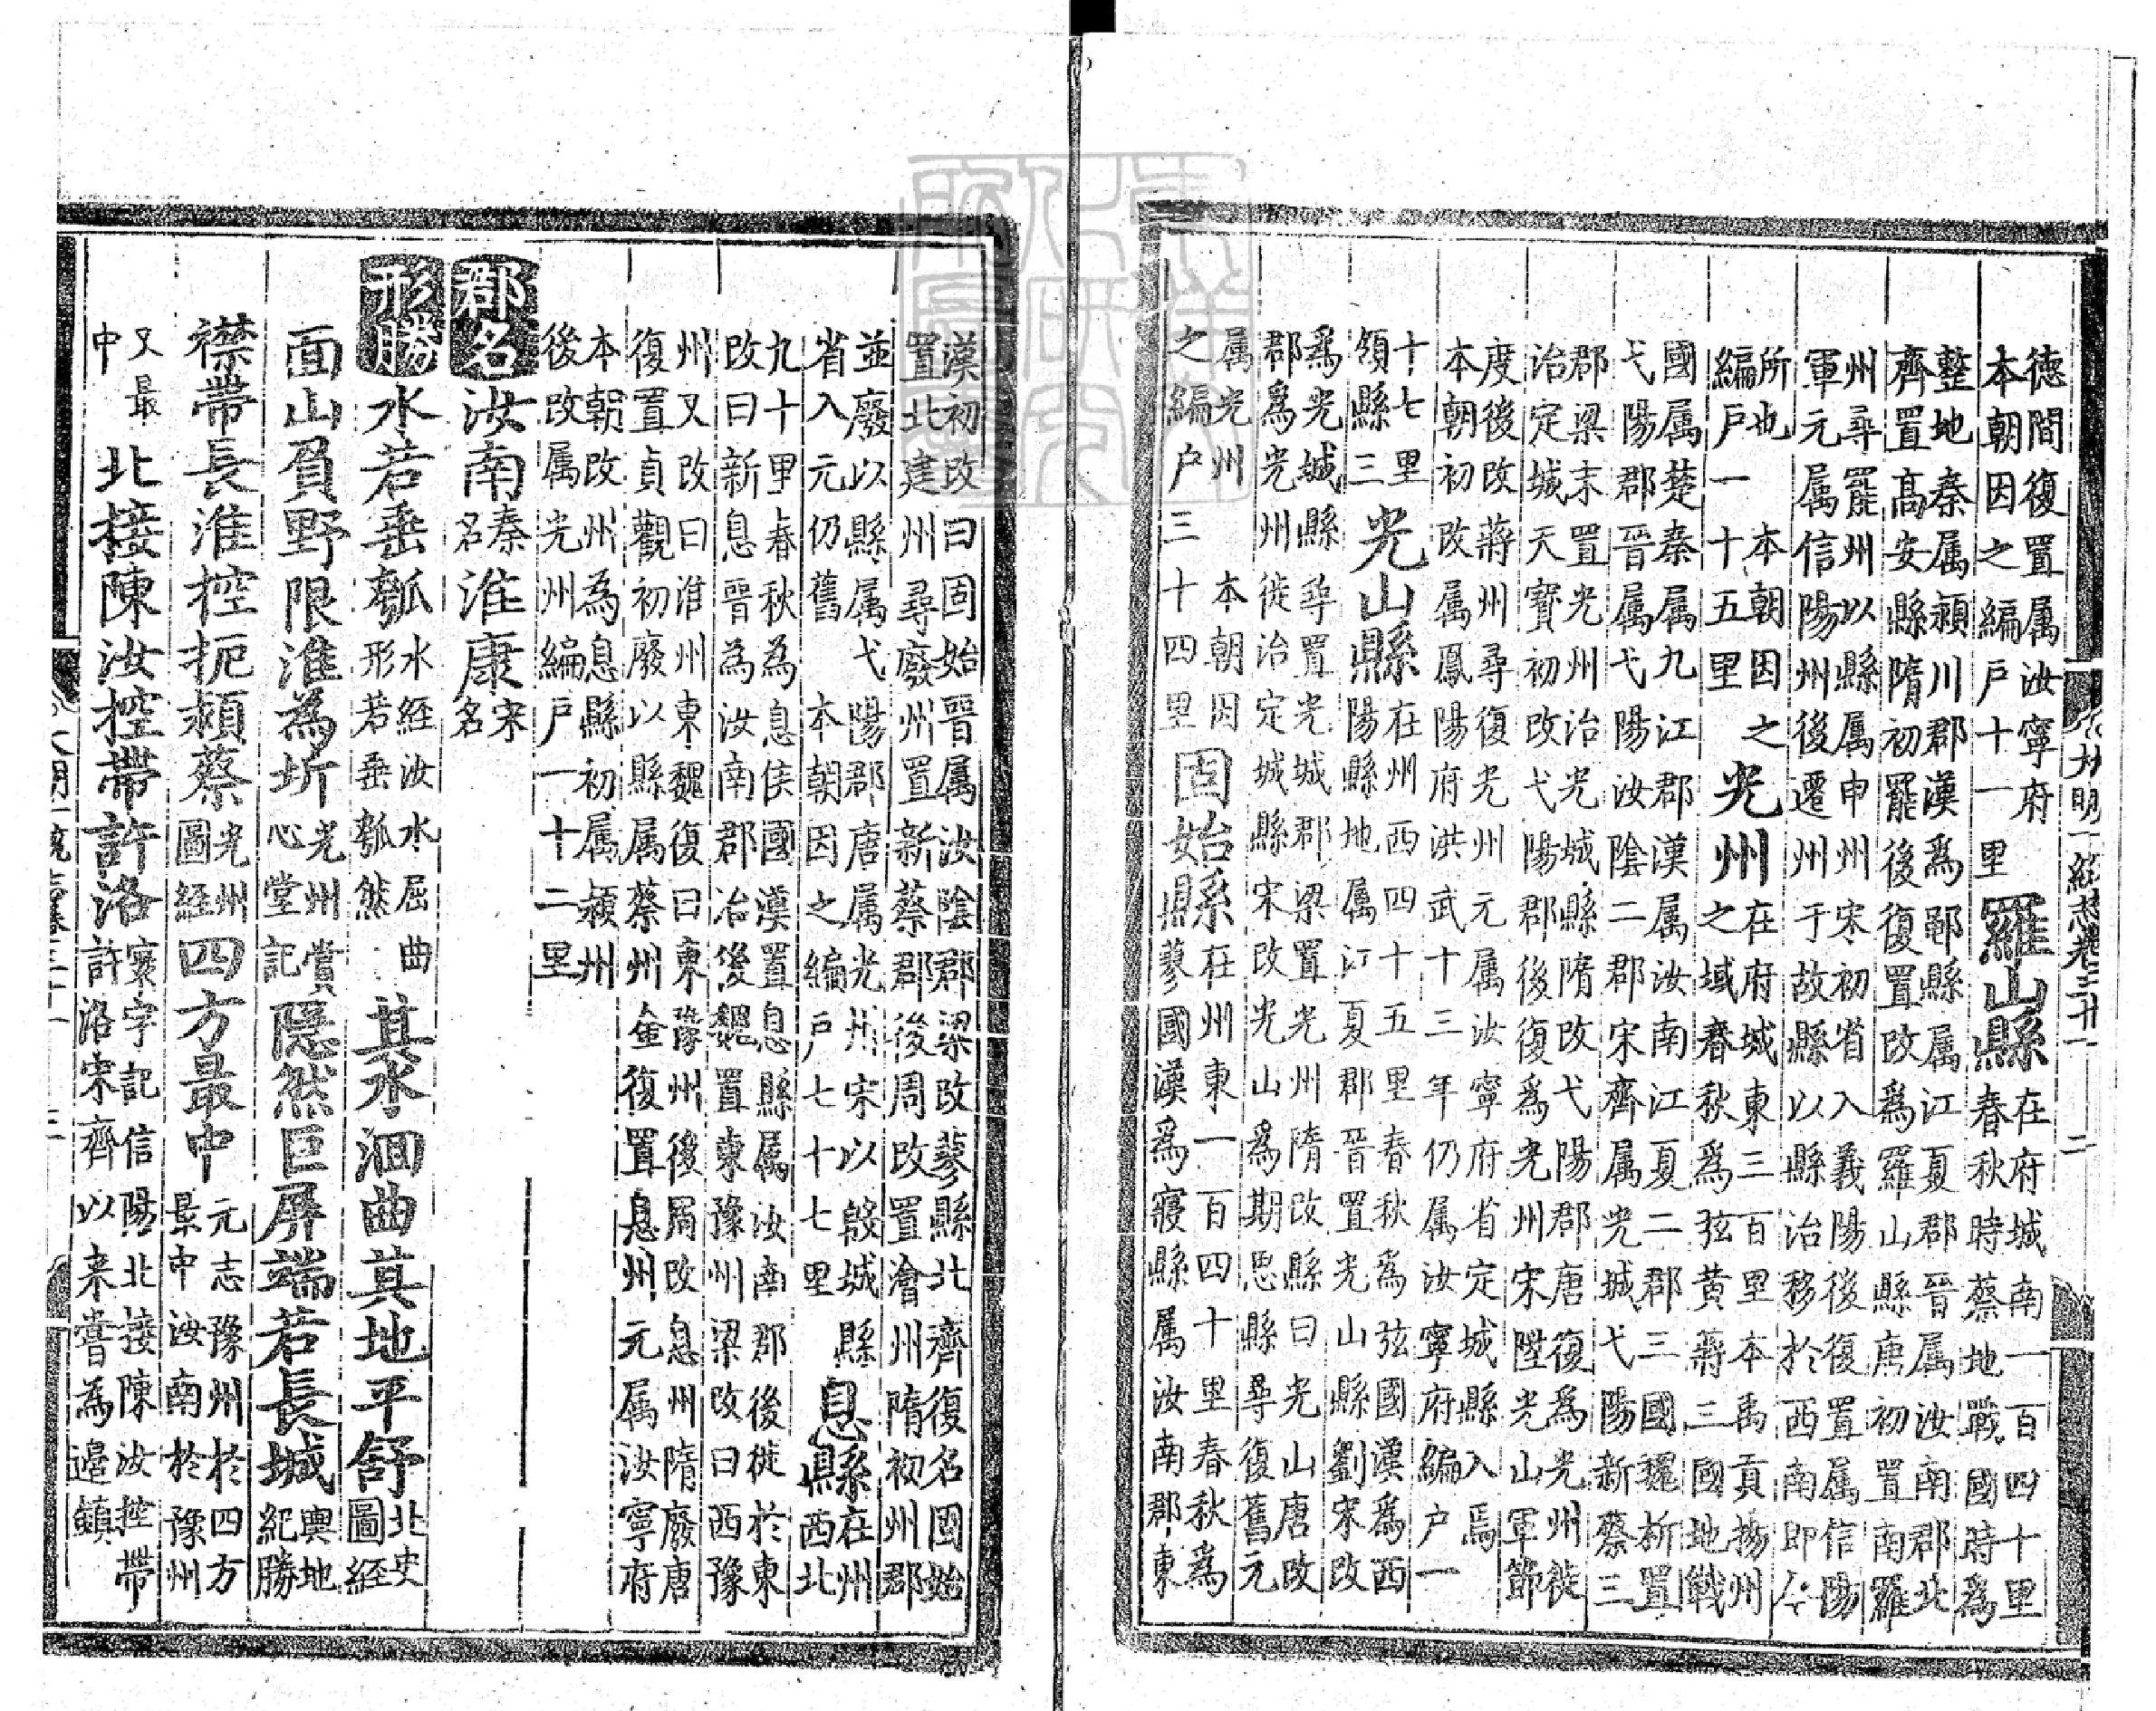 德間復置属汝寧府
本朝因之編户十一里
羅山縣
在府城南一百四十里
春秋時蔡地戰國時爲
整地秦属潁川郡漢爲鄳縣属江夏郡晉属汝南郡北
齊置髙安縣隋初罷後復置改爲羅山縣唐初置南羅
州尋罷州以縣属申州宋初省入義陽後復置属信陽
軍元属信陽州後遷州于故縣以縣治移於西南即今
所也 本朝因之
編戶一十五里
光州
在府城東三百里本禹貢揚州
之域春秋爲弦黄蔣三國地戰
國属楚秦属九江郡漢属汝南江夏二郡三國魏析置
弋陽郡晉属弋陽汝陰二郡宋齊属光城弋陽新蔡三
郡梁末置光州治光城縣隋改弋陽郡唐復爲光州徙
治定城天寳初改弋陽郡後復爲光州宋陞光山軍節
度後改蔣州尋復光州元属汝寧府省定城縣入焉
本朝初改属鳳陽府洪武十三年仍属汝寧府編户一
十七里
領縣三
光山縣
在州西四十五里春秋為弦國漢為西
陽縣地属江夏郡晉置光山縣劉宋改
爲光城縣尋置光城郡梁置光州隋改縣曰光山唐改
郡爲光州徙治定城縣宋改光山爲期思縣尋復舊元
属光州 本朝因
之編户三十四里
固始縣
在州東一百四十里春秋爲
蓼國漢爲寢縣属汝南郡東
漢初改曰固始晉属汝陰郡梁改蓼縣北齊復名固始
置北建州尋廢州置新蔡郡後周改置澮州隋初州郡
並廢以縣属弋陽郡唐属光州宋以殽城縣
省入元仍舊 本朝因之編户七十七里
息縣
在州西北
九十里春秋為息侯國漢置息縣属汝南郡後徙於東
改曰新息晉為汝南郡治後魏置東豫州梁改曰西豫
州又改曰淮州東魏復曰東豫州後周改息州隋廢唐
復置貞觀初廢以縣属蔡州金復置息州元属汝寧府
本朝改州為息縣初属潁州
後改属光州編戸一十二里
郡名
汝南
秦名
淮康
宋名
形勝
水若垂瓠
水経汝水屈曲
形若垂瓠然
其水洄曲其地平舒
北史
圖経
面山負野限淮為圻
光州賞
心堂記
隱然巨屏端若長城
輿地
紀勝
襟帶長淮控扼潁蔡
光州
圖経
四方最中
元志豫州於四方
最中汝南於豫州
又最
中
北接陳汝控帶許洛
寰宇記信陽北接陳汝控帶
許洛宋齊以来嘗為邉鎮